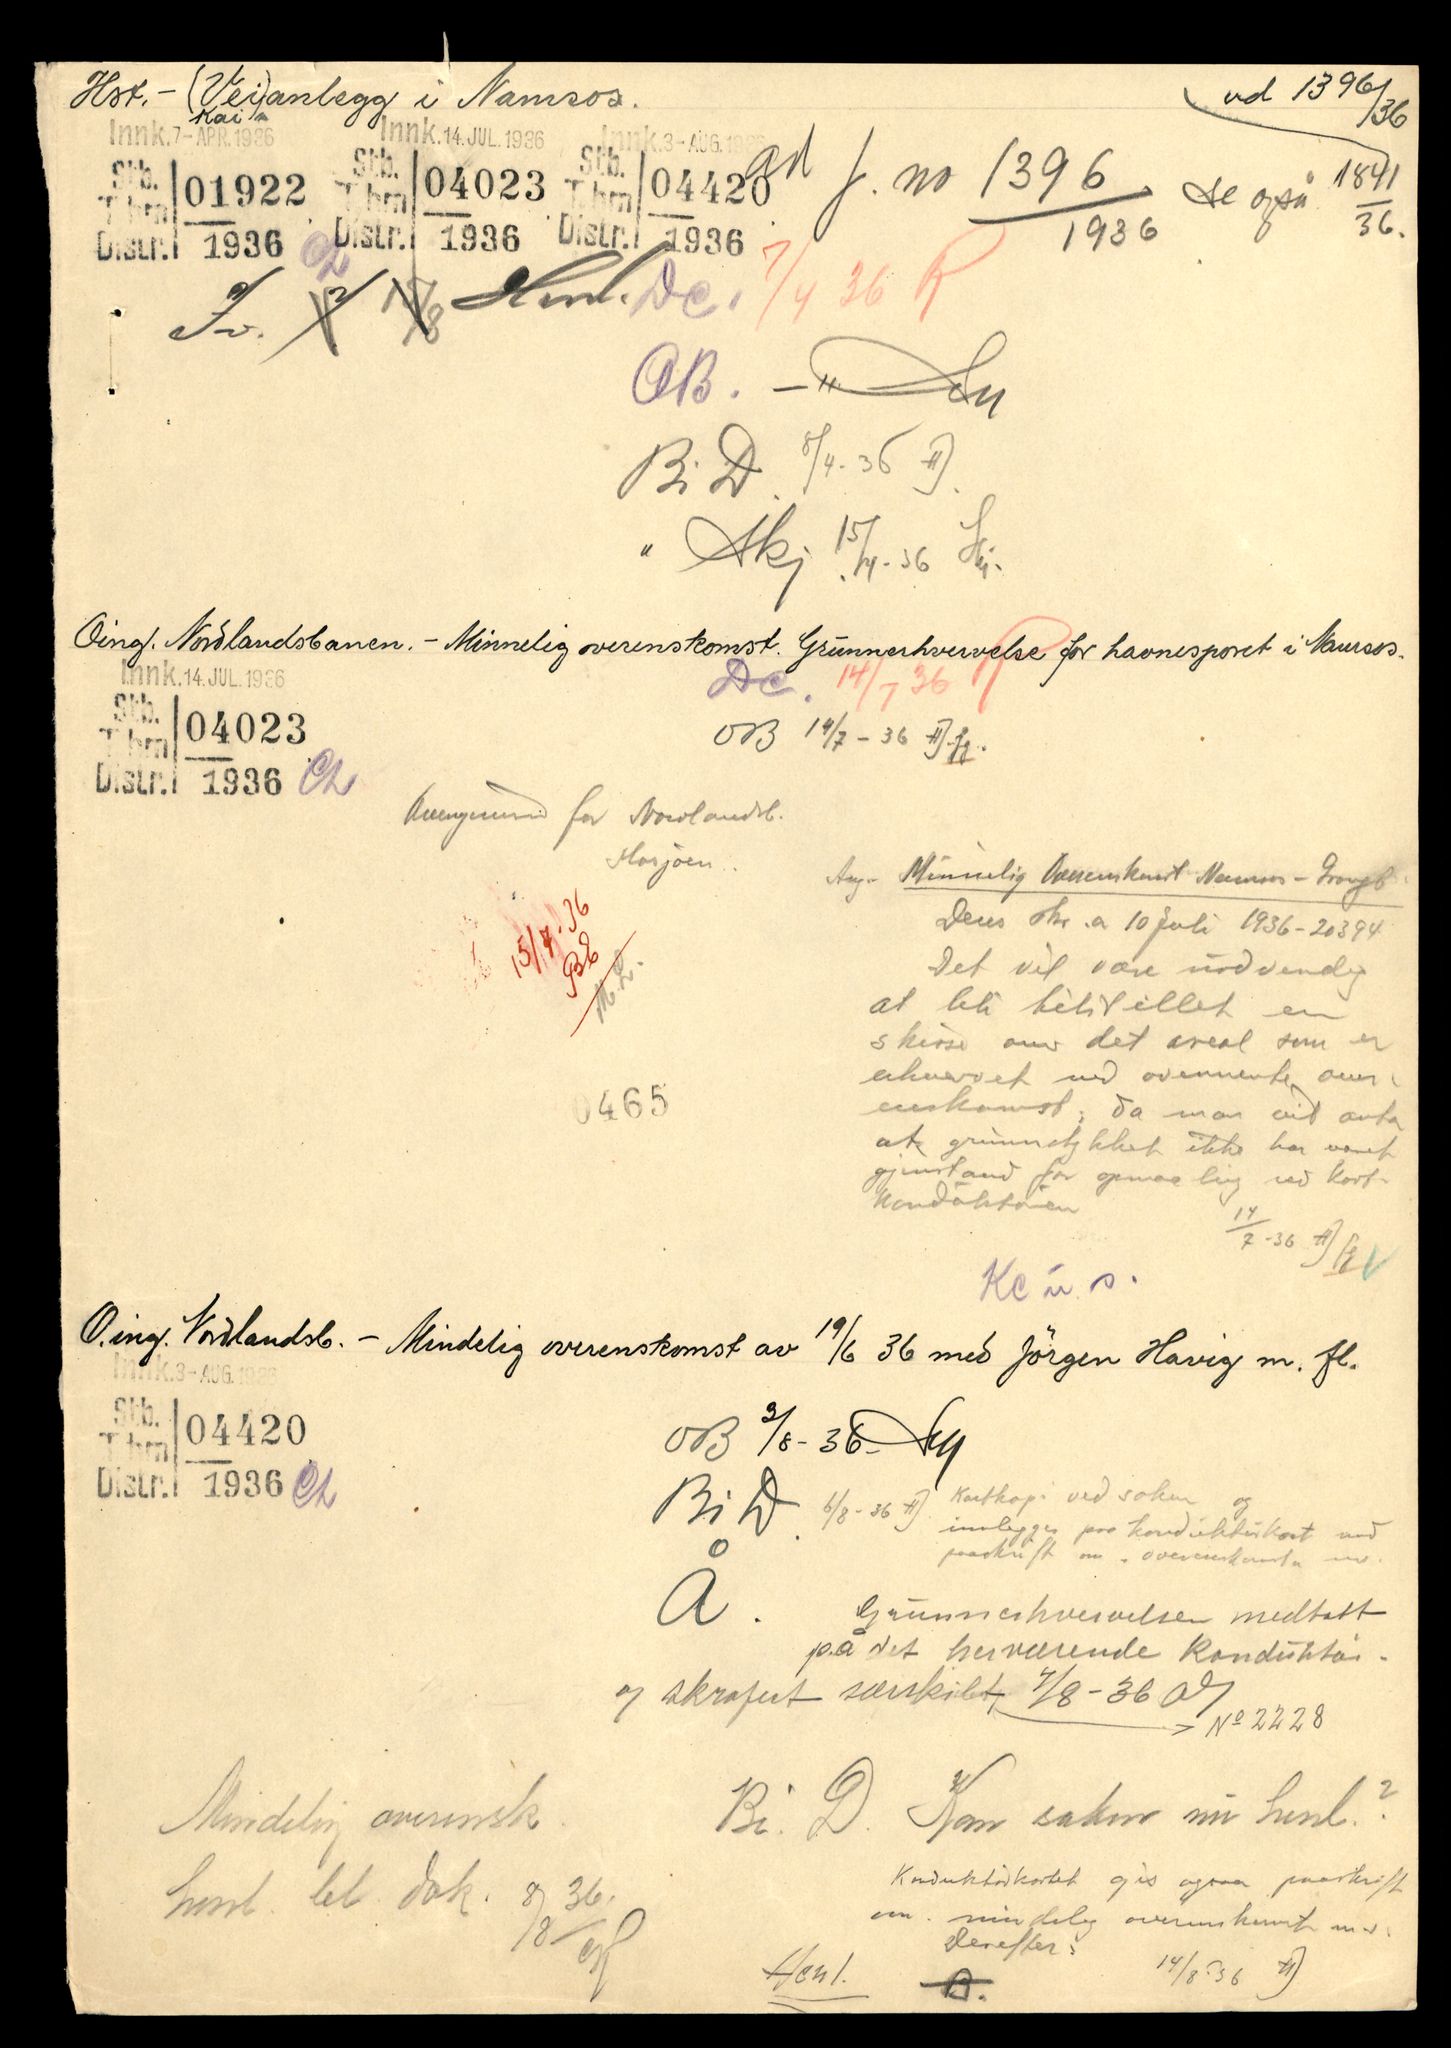 Hst. - (Vei)anlegg i Namsos.
Kai
ved 1396/36
Innk. 7-APR. 1936
Stb.
T.hm
Distr.
01922
1936
Innk. 14. JUL. 1936
Stb.
T.hm
Distr.
04023
1936
Innk. 3-AUG. 1936
Stb.
T.hm
Distr.
04420
1936
ad j. no 1396/1936
se også 1841/36.
15/8 Henl.
Dc. 7/4 36
OB. - " -
Bi D. 8/4-36
" Skj 15/4-36
Oing. Nordlandsbanen. - Minnelig overenskomst. Grunnerhvervelse for havnesporet i Namsos.
Innk. 14. JUL. 1936
Stb.
T.hm
Distr.
04023
1936
Dc. 14/7 36
OB 14/7-36
for Nordlandsb.
Mosjøen.
15/7-36
0465
Ang. Minnelig Overenskomst Namsos - Grongb.
Deres skr. a 10 juli 1936-20394
Det vil være nødvendig
at bli tilstillet en
skisse over det areal som er
erhvervet ved ovennevnte over-
enskomst, da man vil anta
at grunnstykket ikke har været
gjenstand for opmaaling ved kart-
konduktøren
14/7-36
O.ing. Nordlandsb. - Mindelig overenskomst av 19/6 36 med Jörgen Havig m. fl.
Innk. 3-AUG. 1936
Stb.
T.hm
Distr.
04420
1936
OB 3/8-36
Bi D. 6/8-36
Kartkopi ved saken og
innlegges paa konduktörkart med
paaskrift om overenskomsten
Å.
Grunnerhvervelsen medtatt
på det herværende konduktör-
og skrafert særskilt, 7/8-36
No 2228
Bi. D. Kan saken nu henl.?
Mindelig overensk.
henl. bl. dok. 8/8 36.
Konduktörkartet gis ogsaa paaskrift
om mindelig overenskomst
Derefter:
Henl.
B.
14/8-36